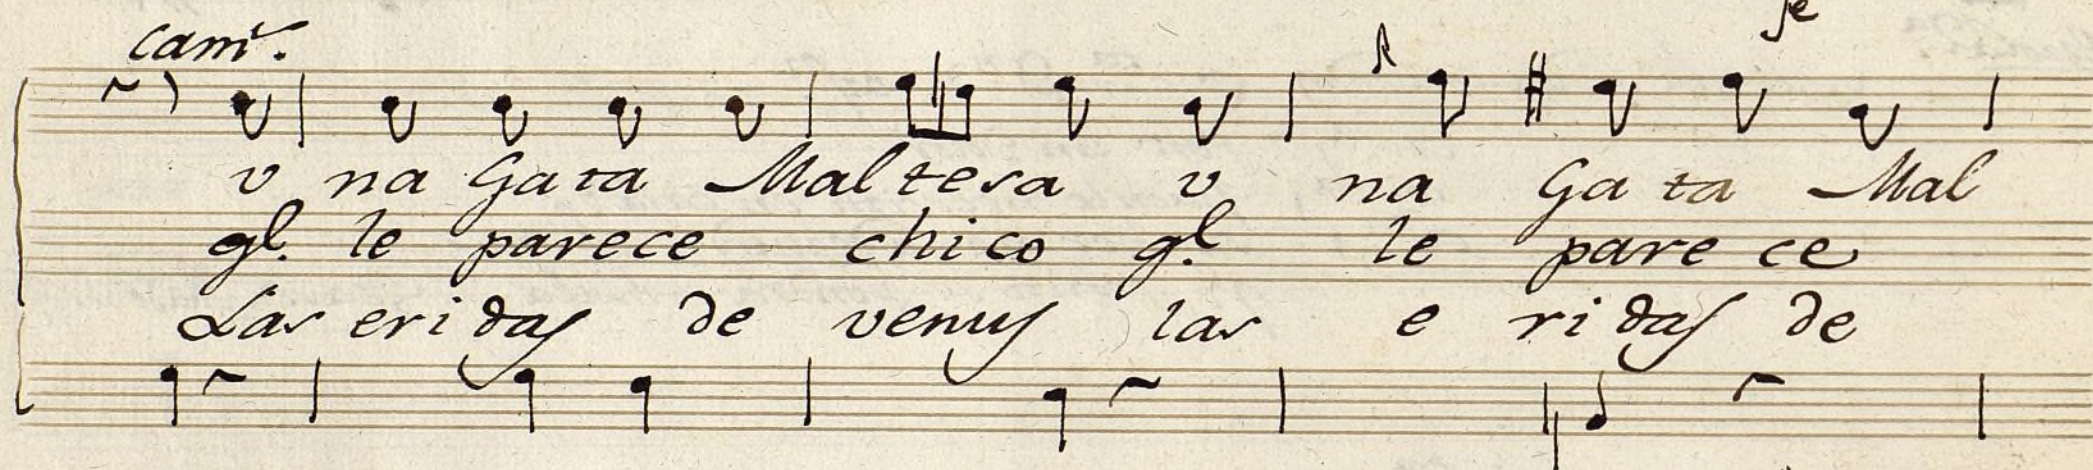 fe
cam.ᵉ
v na Gata Maltesa v na Gata Mal
gl. le parece chico gl. le parece
Las eridas de venus las eridas de